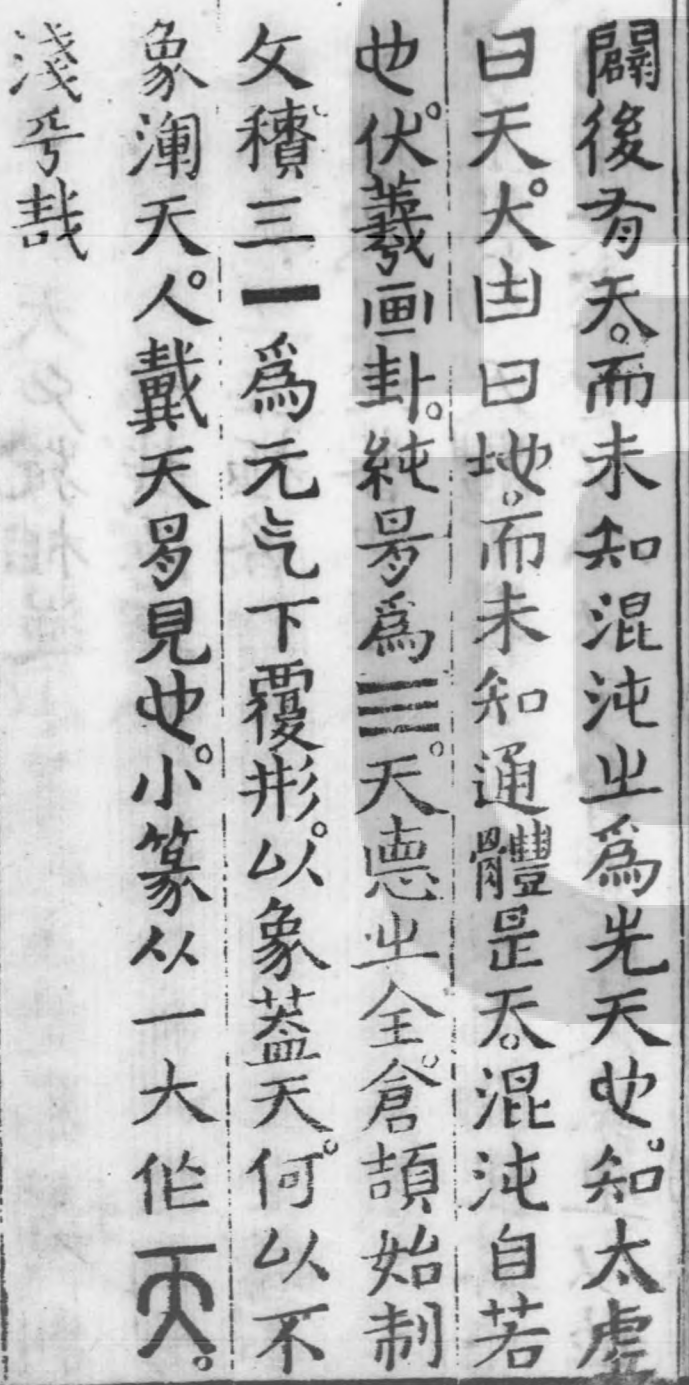 闢後有天。而未知混沌㞢爲先天也。知太虛
曰天。大凷曰地。而未知通體是天。混沌自若
也。伏羲画卦。純昜爲☰。天悳㞢全。倉頡始制
文積三一爲元气下覆形。以象葢天。何以不
象渾天。人戴天昜見也。小篆从一大作𠀘。
淺乎哉